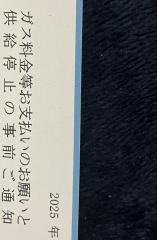 ガス料金等お支払いのお願いと
供給停止の事前ご通知
2025 年